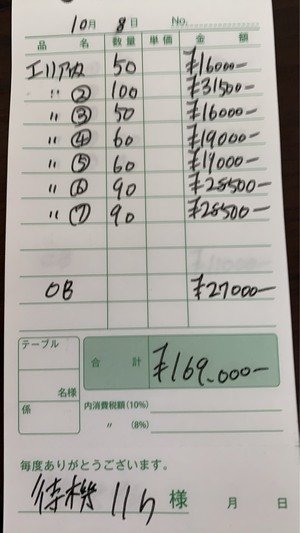 10月 8日 No.
品名 数量 単価 金額
50 ¥16000-
〃 ② 100 ¥31500-
〃 ③ 50 ¥16000-
〃 ④ 60 ¥19000-
〃 ⑤ 60 ¥19000-
〃 ⑥ 90 ¥28500-
〃 ⑦ 90 ¥28500-
OB ¥27000-
テーブル
合計 ¥169.000-
名様
係
内消費税額(10%)
〃 (8%)
毎度ありがとうございます。
待機 11h 様 月 日